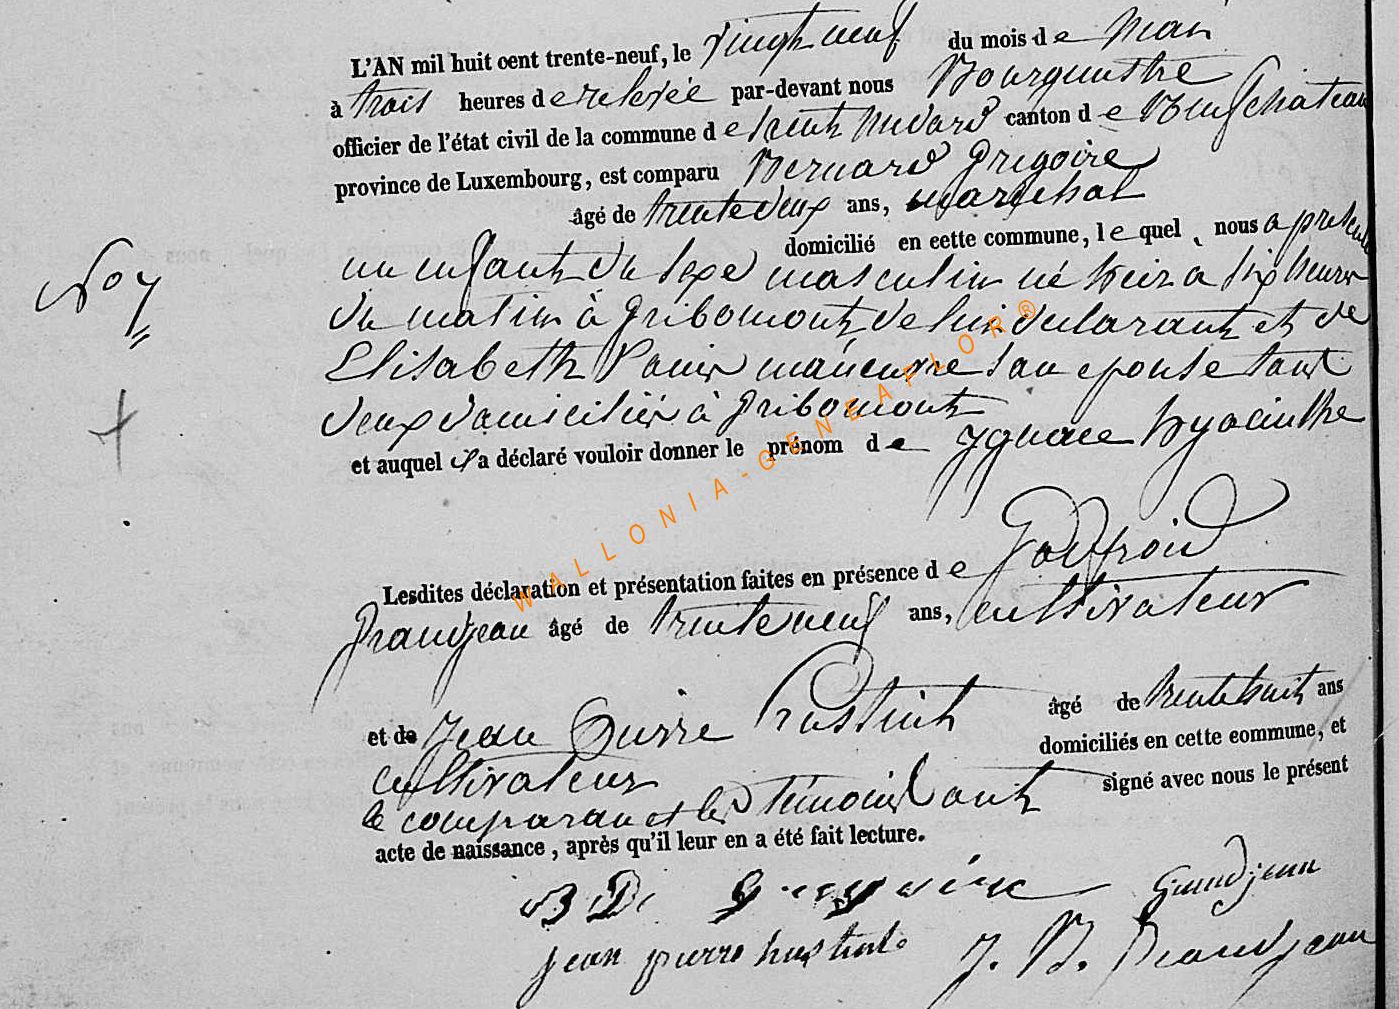 L'AN mil huit cent trente-neuf, le vingt neuf du mois de Mai
à trois heures de relevée par-devant nous Bourguestre
officier de l'état civil de la commune de Saint Médard canton de Neufchateau
province de Luxembourg, est comparu Bernard Grégoire
âgé de trente deux ans, maréchal
domicilié en cette commune, lequel nous a présenté
un enfant du sexe masculin né hier a six heures
du matin à Gribomont de lui déclarant et de
Elisabeth manœuvre son epouse tous
deux domiciliés à Gribomont
et auquel il a déclaré vouloir donner le prénom de Ygnace hyacinthe
No 7
Lesdites déclaration et présentation faites en présence de Godfroid
Grandjean âgé de trente neuf ans, cultivateur
et de Jean Pierre hustinh âgé de trente huit ans
cultivateur domiciliés en cette commune, et
le comparan et les témoins ont signé avec nous le présent
acte de naissance, après qu'il leur en a été fait lecture.
Grandjean
jean pierre J. B. Grandjean
WALLONIA-GENEAFLOR®